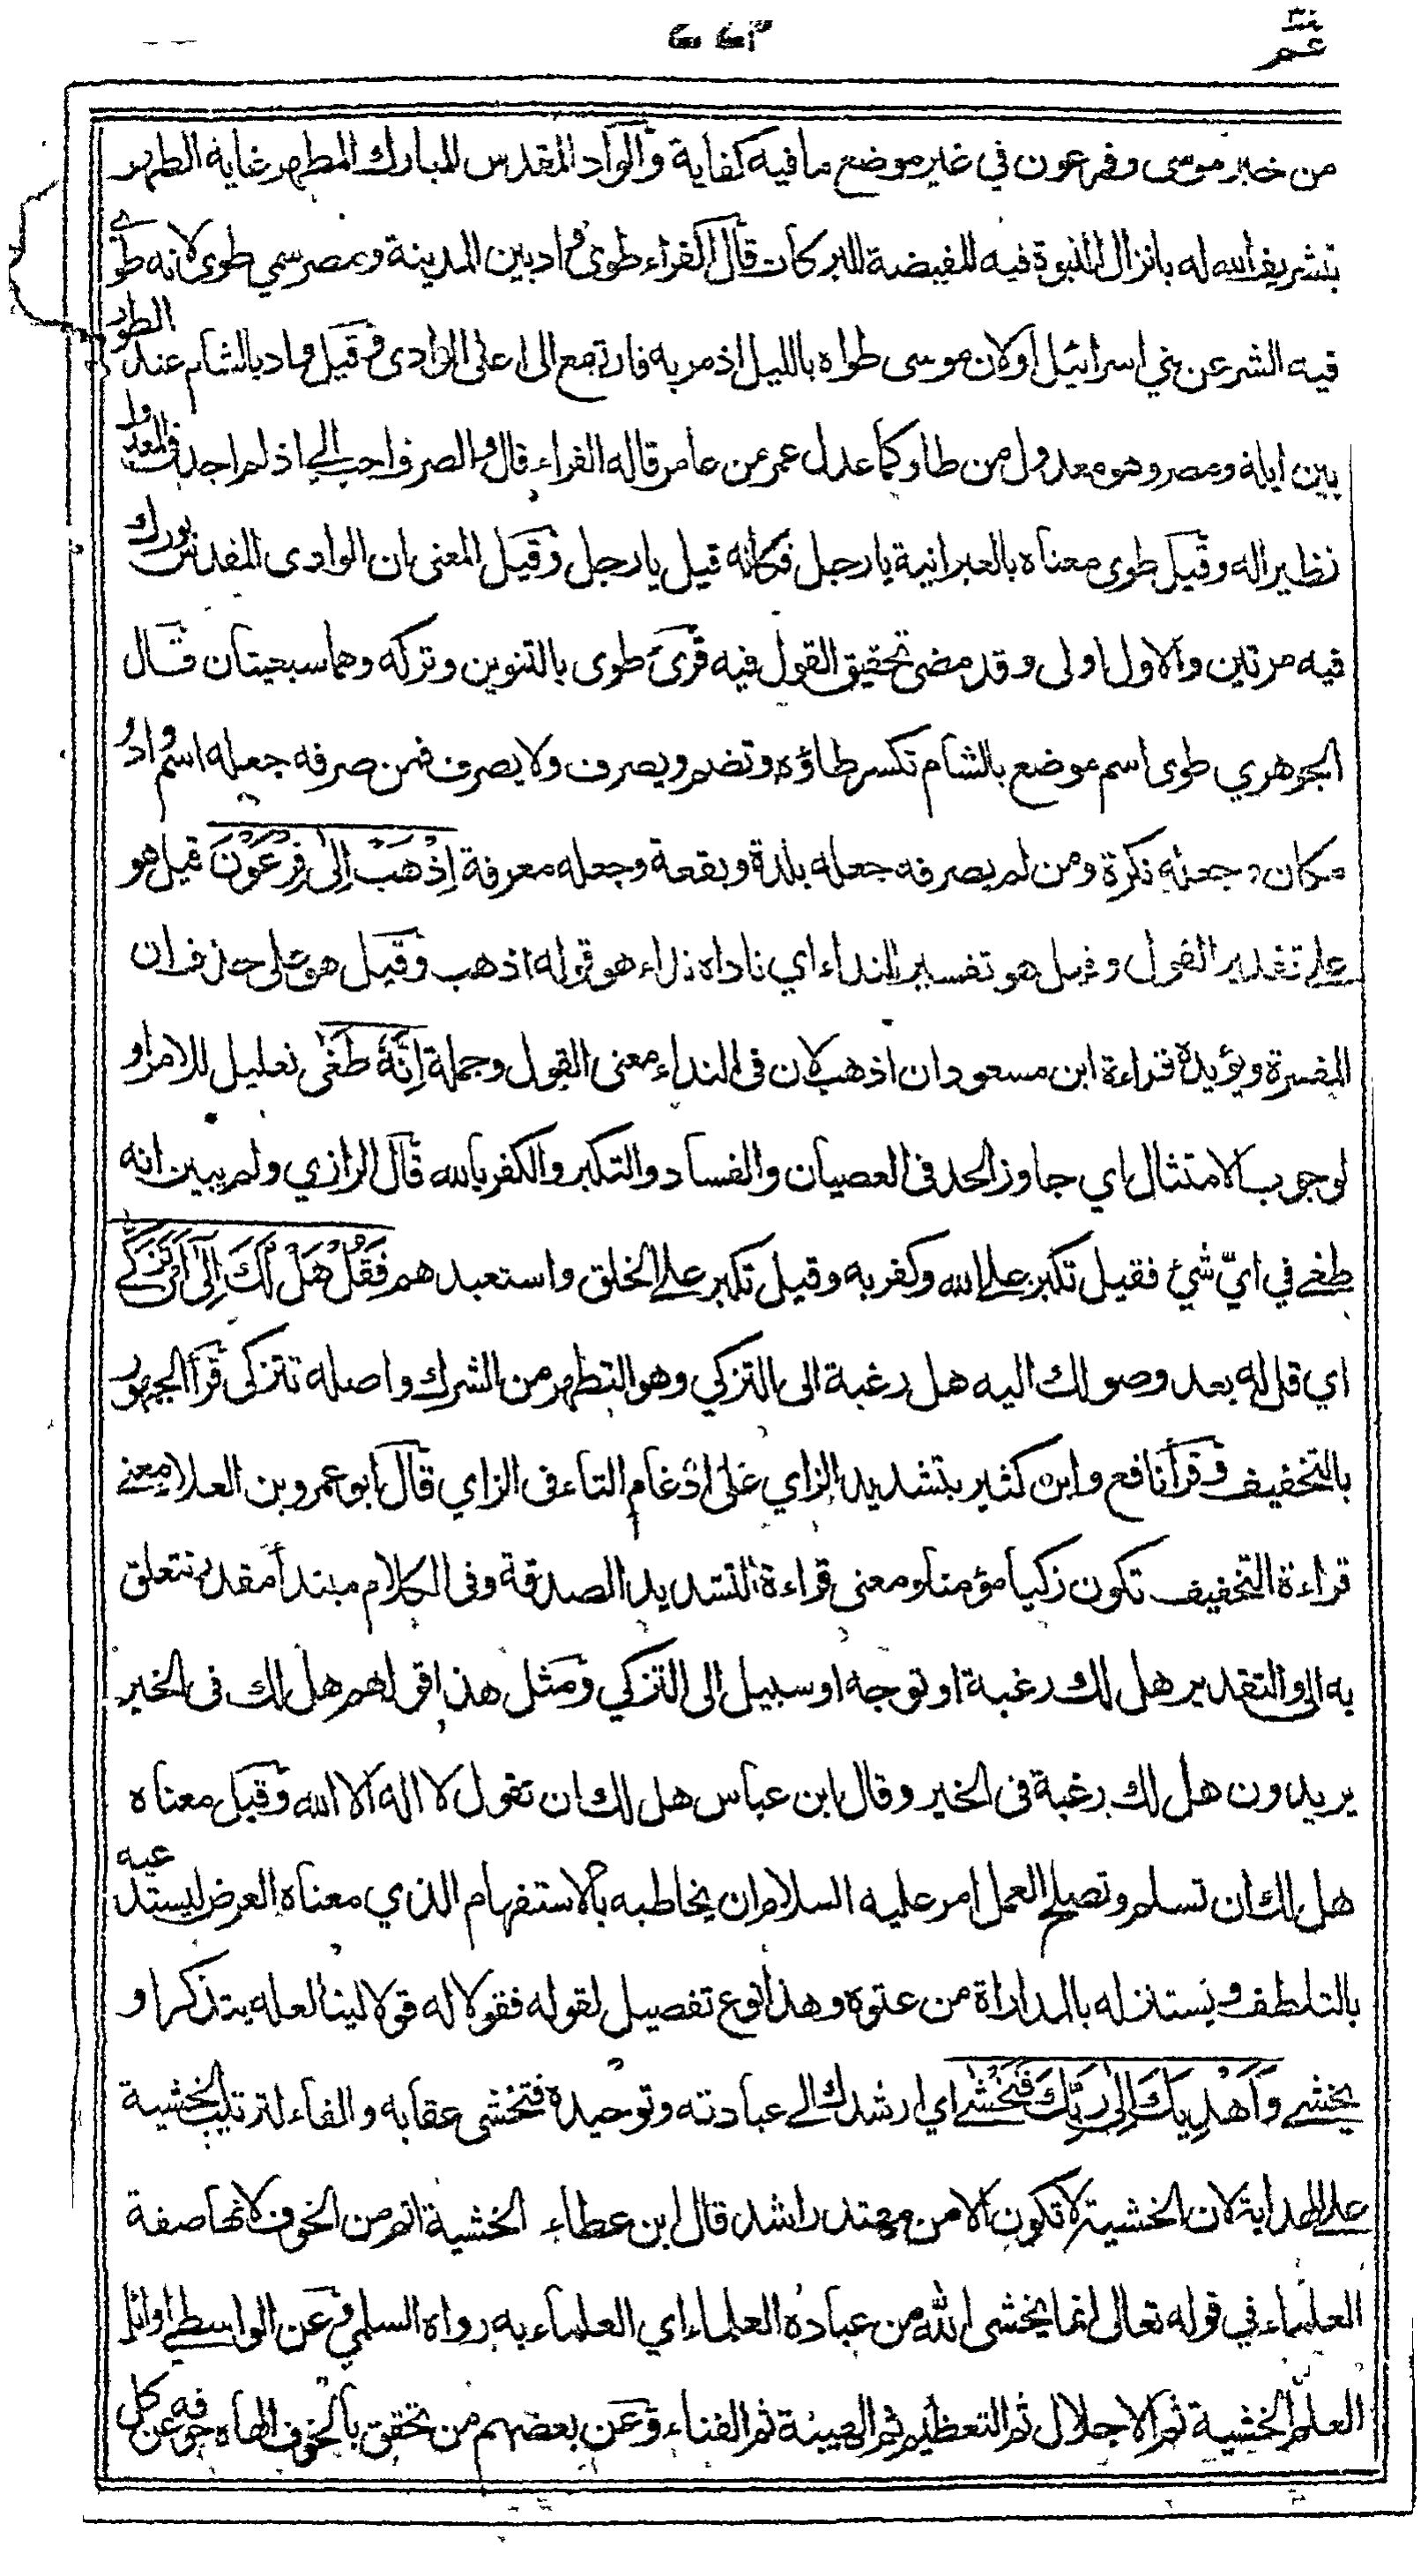 عم
من خبر موسى وفرعون في غير موضع ما فيه كفاية والواد المقدس المبارك المطهر غاية الطهر
بتشريف الله له بانزال النبوة فيه المفيضة للبركات قال الفراء طوى واد بين المدينة ومصر سمي طوى لانه طوى
فيه الشر عن بني اسرائيل او لان موسى طواه بالليل اذ مر به فارتفع الى اعلى الوادى وقيل واد بالشام عند الطور
بين ايلة ومصر وهو معدول من طاو كما عدل عمر عن عامر قاله الفراء قال والصرف احب الي اذ لم اجد في المعدول
نظيرا له وقيل طوى معناه بالعبرانية يا رجل فكانه قيل يا رجل وقيل المعنى ان الوادى المقدس بورك
فيه مرتين والاول اولى وقد مضى تحقيق القول فيه قرئ طوى بالتنوين وتركه وهما سبعيتان قال
الجوهري طوى اسم موضع بالشام تكسر طاؤه وتضم ويصرف ولا يصرف فمن صرفه جعله اسم واد
ومكان وجعله نكرة ومن لم يصرفه جعله بلدة وبقعة وجعله معرفة اِذْهَبْ اِلٰى فِرْعَوْنَ قيل هو
على تقدير القول وقيل هو تفسير للنداء اي ناداه نداء هو قوله اذهب وقيل هو على حذف ان
المفسرة ويؤيده قراءة ابن مسعود ان اذهب لان فى النداء معنى القول وجملة اِنَّهٗ طَغٰى تعليل للامر او
لوجوب الامتثال اي جاوز الحد فى العصيان والفساد والتكبر والكفر بالله قال الرازي ولم يبين انه
طغى في ايّ شئ فقيل تكبر على الله وكفر به وقيل تكبر على الخلق واستعبدهم فَقُلْ هَلْ لَّكَ اِلٰى اَنْ تَزَكّٰى
اي قل له بعد وصولك اليه هل رغبة الى التزكي وهو التطهر من الشرك واصله تتزكى قرأ الجمهور
بالتخفيف وقرأ نافع وابن كثير بتشديد الزاي على ادغام التاء فى الزاي قال ابو عمرو بن العلا معنى
قراءة التخفيف تكون زكيا مؤمنا ومعنى قراءة التشديد الصدقة وفى الكلام مبتدأ مقدر تتعلق
به الى والتقدير هل لك رغبة او توجه او سبيل الى التزكي ومثل هذا قولهم هل لك فى الخير
يريدون هل لك رغبة فى الخير وقال ابن عباس هل لك ان تقول لا اله الا الله وقيل معناه
هل لك ان تسلم وتصلح العمل امر عليه السلام ان يخاطبه بالاستفهام الذي معناه العرض ليستدعيه
بالتلطف ويستنزله بالمداراة من عتوه وهذا نوع تفصيل لقوله فقولا له قولا لينا لعله يتذكر او
يخشى وَاَهْدِيَكَ اِلٰى رَبِّكَ فَتَخْشٰى اي ارشدك الى عبادته وتوحيده فتخشى عقابه والفاء لترتيب الخشية
على الهداية لان الخشية لا تكون الا من مهتد راشد قال ابن عطاء الخشية اتم من الخوف لانها صفة
العلماء في قوله تعالى انما يخشى الله من عباده العلماء اي العلماء به رواه السلمي وعن الواسطي اوائل
العلم الخشية ثم الاجلال ثم التعظيم ثم الهيبة ثم الفناء وعن بعضهم من تحقق بالخوف الهاه خوفه عن كل